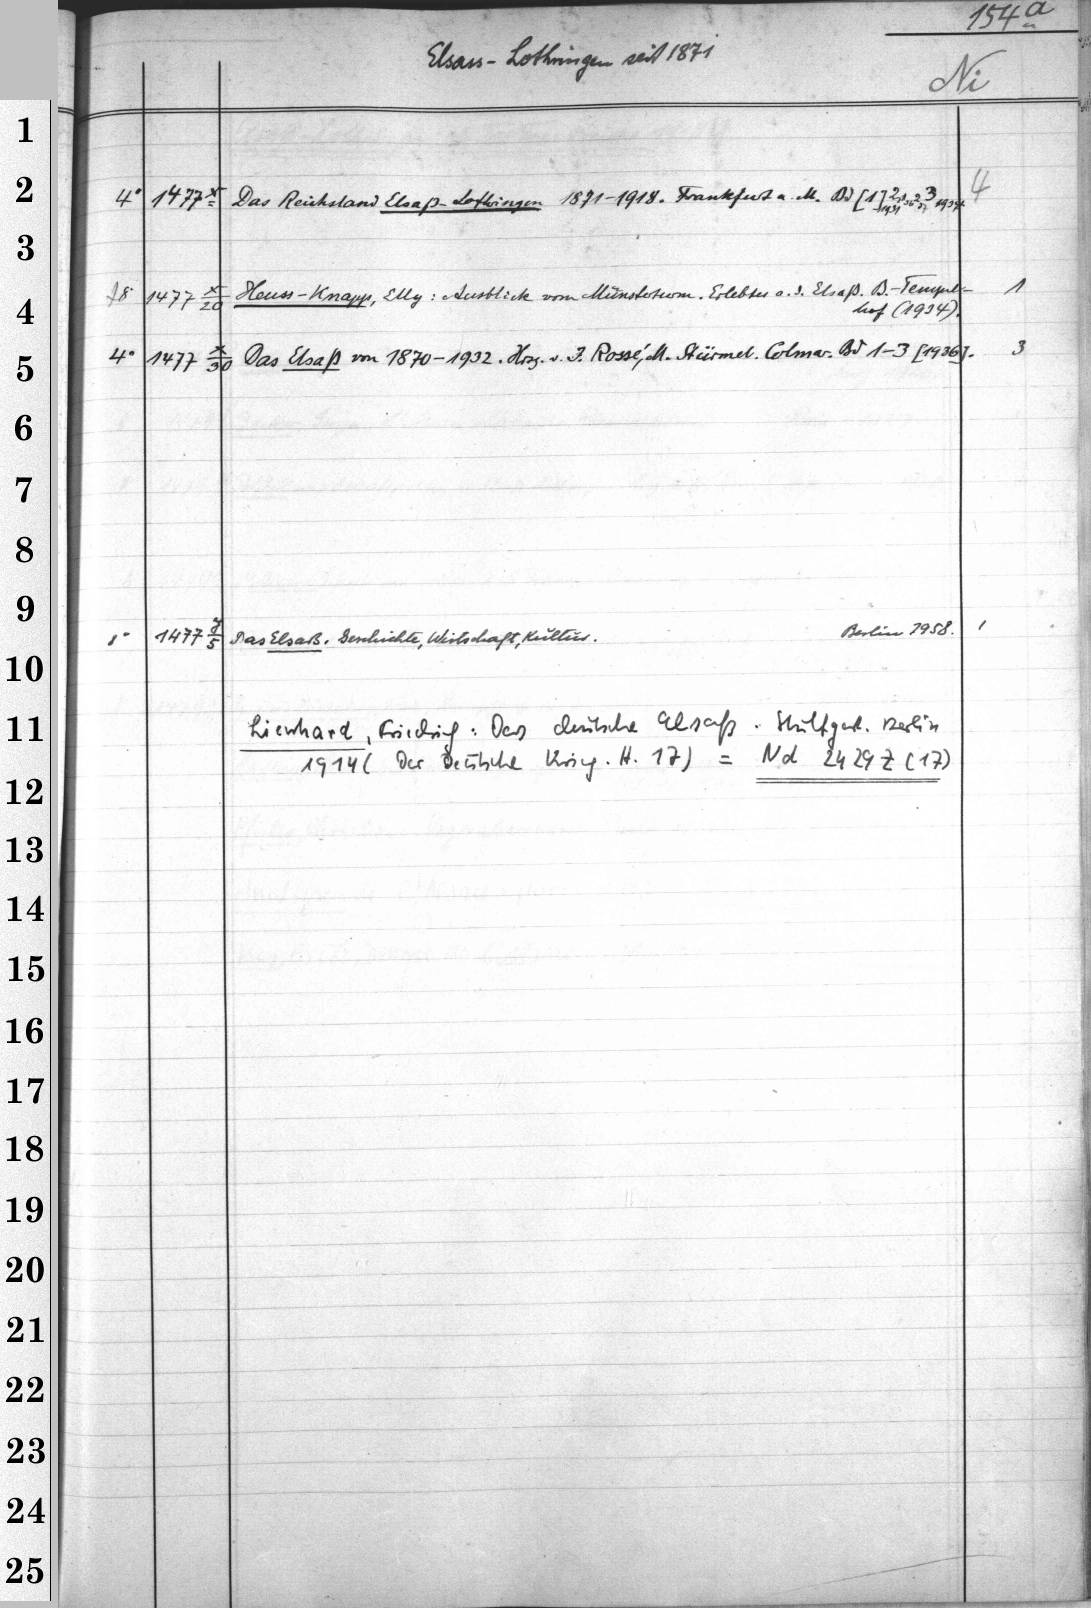 154a
Elsass-Lothringen seit 1871
Ni
1
2
4° 1477 x Das Reichsland Elsaß-Lothringen 1871-1918. Frankfurt a. M. Bd [1] 1931 2, 3 1934. 4
3
8° 1477 x/20 Heuss-Knapp, Elly: Ausblick vom Münsterturm. Erlebtes a. d. Elsaß. B.-Tempel- 1
4
hof (1934).
4° 1477 x/30 Das Elsaß von 1870-1932. Hrsg. v. J. Rossé, M. Stürmel. Colmar. Bd 1-3 [1936]. 3
5
6
7
8
9
1477 y/5 Das Elsaß. Geschichte, Wirtschaft, Kultur. Berlin 1958. 1
10
11
Lienhard, Friedrich: Das deutsche Elsaß. Stuttgart. Berlin
1914 (Der Deutsche Krieg. H. 17) = Nd 2429 Z (17)
12
13
14
15
16
17
18
19
20
21
22
23
24
25